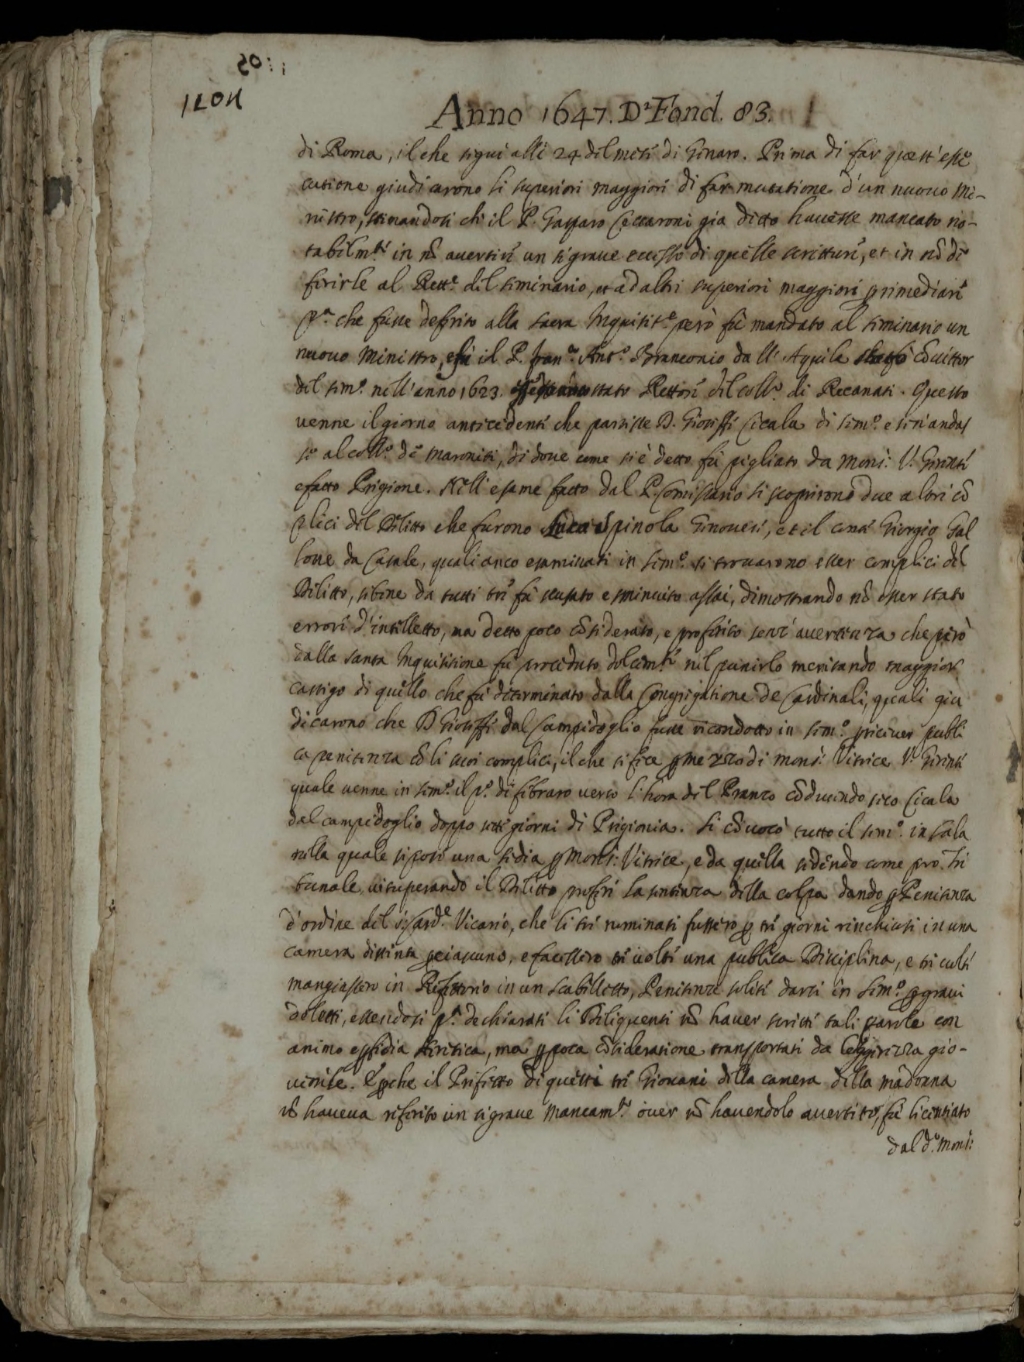 Anno 1647. D'Fond. 83.
di Roma, il che seguì alli 24 del mese di Genaro. Prima di far quest'esse
cutione giudicarono li superiori maggiori di far mutatione d'un nuovo Mi-
nistro, stimandosi che il P. Gasparo Ceccaroni già ditto havesse mancato no-
tabilm.te in nõ avertire un sì grave eccesso di quelle scritture, et in nõ di
ferirle al Rett.e del seminario, et ad altri superiori maggiori p rimediare
p.a che fusse deferito alla sacra Inquisit.e però fù mandato al seminario un
nuovo Ministro, e fù il P. Fran.co Ant.o Branconio dall'Aquila Cõvittor
del sem.o nell'anno 1623. stato Rettore del coll.o di Recanati. Questo
venne il giorno antecedente che partisse D. Gioseffe Cicala di sem.o e se n'andas
se al coll.o de Maroniti, di dove come si è detto fù pigliato da Mons: V. Gerente
e fatto Prigione. Nell'esame fatto dal P. Comissario si scoprirono due altri cõ
plici del Delitto che furono Luca Spinola Genovese, et il Conte Giorgio Gal
lone da Casale, quali anco esaminati in sem.o si trovarono esser complici del
Delitto, sebene da tutti tre fù scusato e sminuito assai, dimostrando nõ esser stato
errore d'intelletto, ma detto poco cõsiderato, e proferito senza avertenza che però
dalla santa Inquisitione fù proceduto dolcemte nel punirlo meritando maggior
castigo di quello che fù determinato dalla Congregatione de Cardinali, quali giu
dicarono che D. Gioseffe dal Campidoglio fusse ricondotto in sem.o p ricever publi
ca penitenza cõ li suoi complici, il che si fece p mezzo di mons: Vitrice V. Gerente
quale venne in sem.o il p.o di Febraro verso l'hora del Pranzo cõducendo seco Cicala
dal campidoglio doppo sette giorni di Prigionia. Si cõvocò tutto il sem.o in sala
nella quale si pose una sedia p Mons: Vitrice, e da quella sedendo come pro Tri
bunale vituperando il Delitto proferì la sentenza della colpa dando p Penitenza
d'ordine del S. Card.e Vicario, che li tre numinati fussero p tre giorni rinchiusi in una
camera distinta p ciascuno, e facessero tre volte una publica Disciplina, e tre volte
mangiassero in Refettorio in un scabelletto, Penitenze solite darsi in Sem.o p gravi
deletti, essendosi p.a dechiarati li Deliquenti nõ haver scritte tali parole con
animo e pfidia heretica, ma p poca cõsideratione transportati da leggerezza gio-
venile. E pche il Prefetto di questi tre Giovani della camera della Madonna
nõ haveva riferito un sì grave mancam.to over nõ havendolo avertito, fù licentiato
dal d.o Mons: